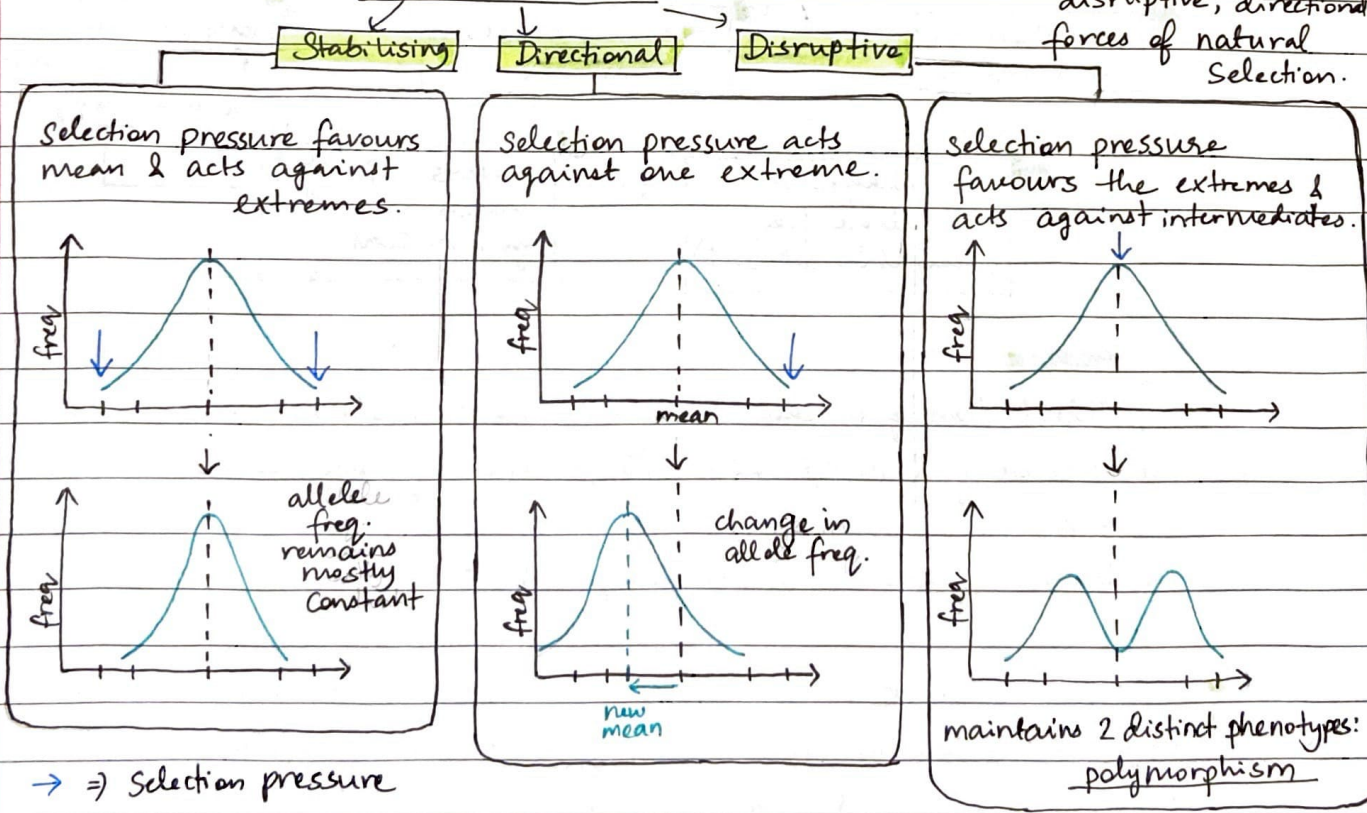 disruptive, directional
forces of natural
selection.
Stabilising
Directional
Disruptive
selection pressure favours
mean & acts against
extremes.
freq
freq
allele
freq.
remains
mostly
constant
selection pressure acts
against one extreme.
freq
mean
freq
change in
allele freq.
new
mean
selection pressure
favours the extremes &
acts against intermediates.
freq
freq
maintains 2 distinct phenotypes:
polymorphism
→ ⇒ selection pressure